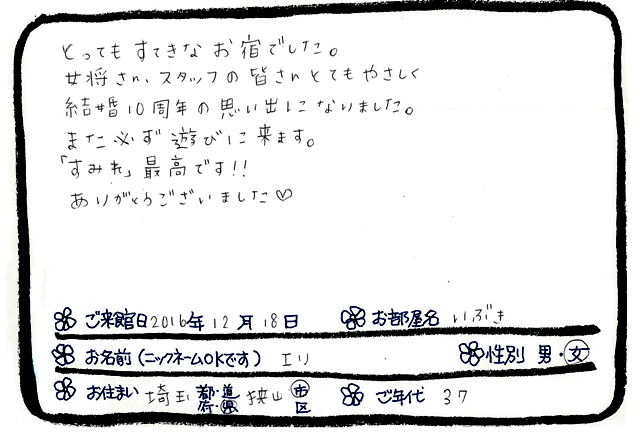 とってもすてきなお宿でした。
女将さん、スタッフの皆さんとてもやさしく
結婚10周年の思い出になりました。
また必ず遊びに来ます。
「すみれ」最高です!!
ありがとうございました♡
ご来館日2016年12月18日 お部屋名 いぶき
お名前(ニックネームOKです) エリ 性別 男・女
お住まい 埼玉 都・道・府・県 狭山 市・区 ご年代 37